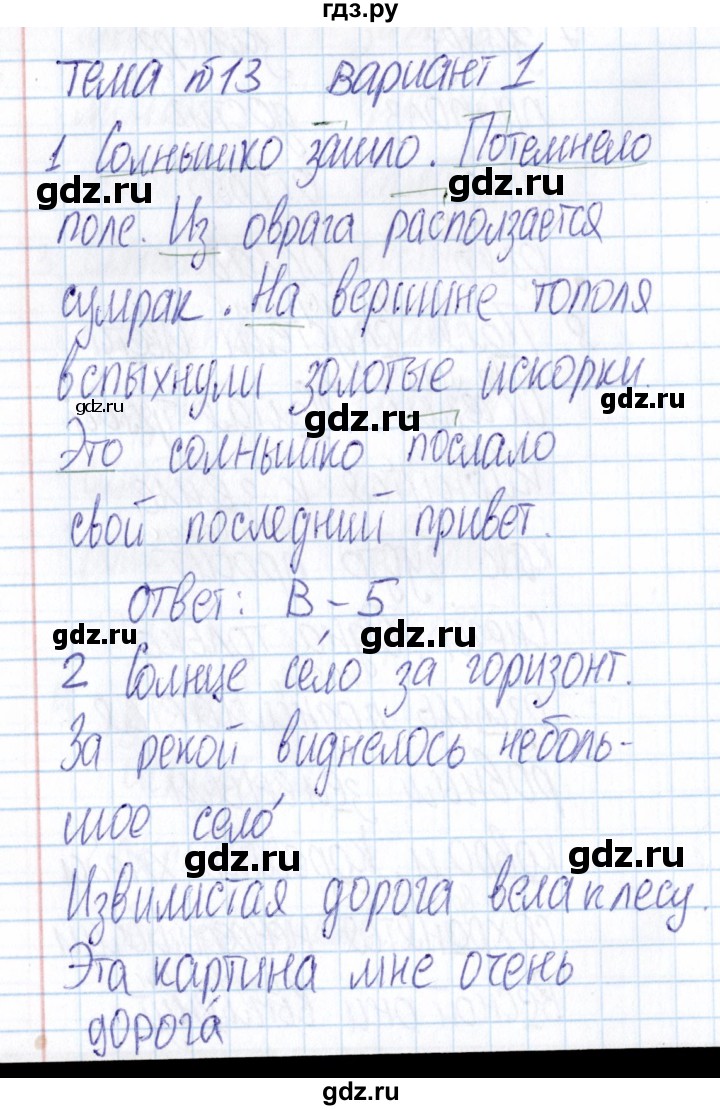 гдз.ру
Тема №13 Вариант 1
1 Солнышко зашло. Потемнело
gdz.ru gdz.ru
поле. Из оврага расползается
сумрак. На вершине тополя
gdz.ru gdz.ru
вспыхнули золотые искорки.
gdz.ru gdz.ru gdz.ru
Это солнышко послало
свой последний привет.
gdz.ru gdz.ru
Ответ: В - 5
gdz.ru gdz.ru
2 Солнце се́ло за горизонт.
За рекой виднелось неболь-
шое село́
gdz.ru gdz.ru
Извилистая дорога вела к лесу.
Эта картина мне очень
gdz.ru gdz.ru
дорога́
gdz.ru